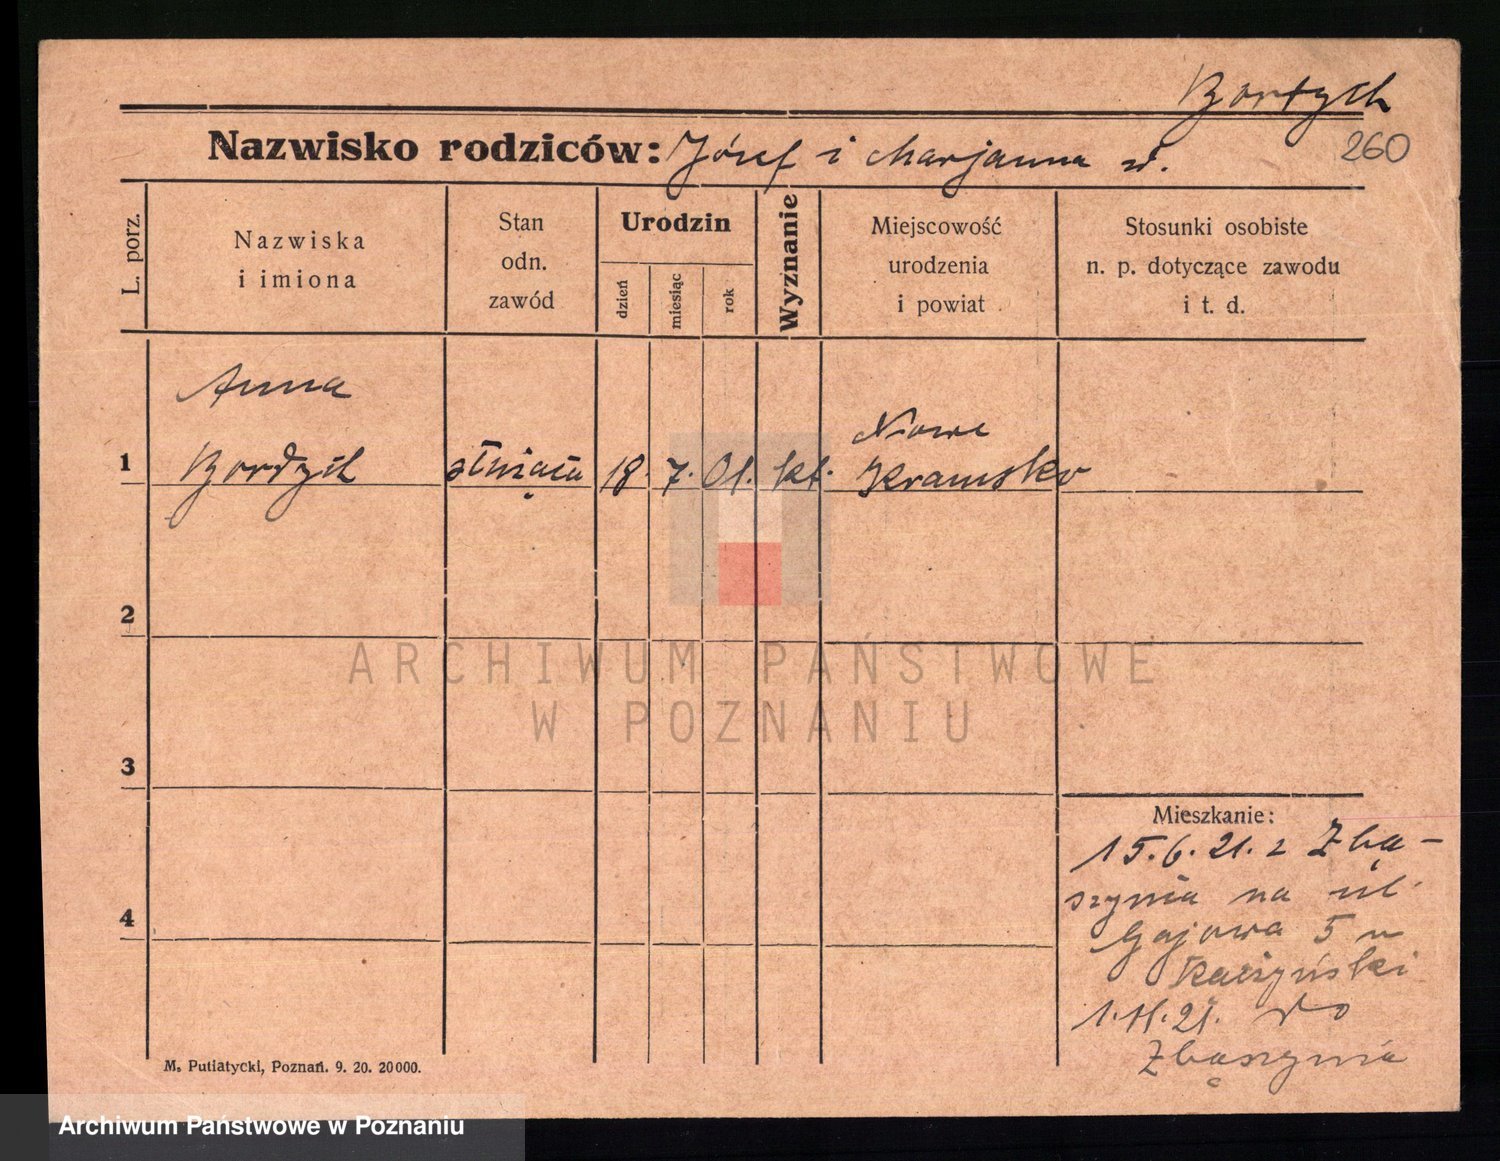 Bordych
260
Nazwisko rodziców: Józef i Marjanna z.
L. porz.
Nazwiska
i imiona
Stan
odn.
zawód
Urodzin
dzień
miesiąc
rok
Wyznanie
Miejscowość
urodzenia
i powiat
Stosunki osobiste
n. p. dotyczące zawodu
i t. d.
Anna
Nowe
1 Bordych służąca 18. 7. 01. kt. Kramsko
2
3
4
Mieszkanie:
15.6.21. z Zbą-
szynia na ul.
Gajowa 5 u
1.11.21. do
Zbąszynia
M. Putiatycki, Poznań. 9. 20. 20000.
ARCHIWUM PAŃSTWOWE
W POZNANIU
Archiwum Państwowe w Poznaniu